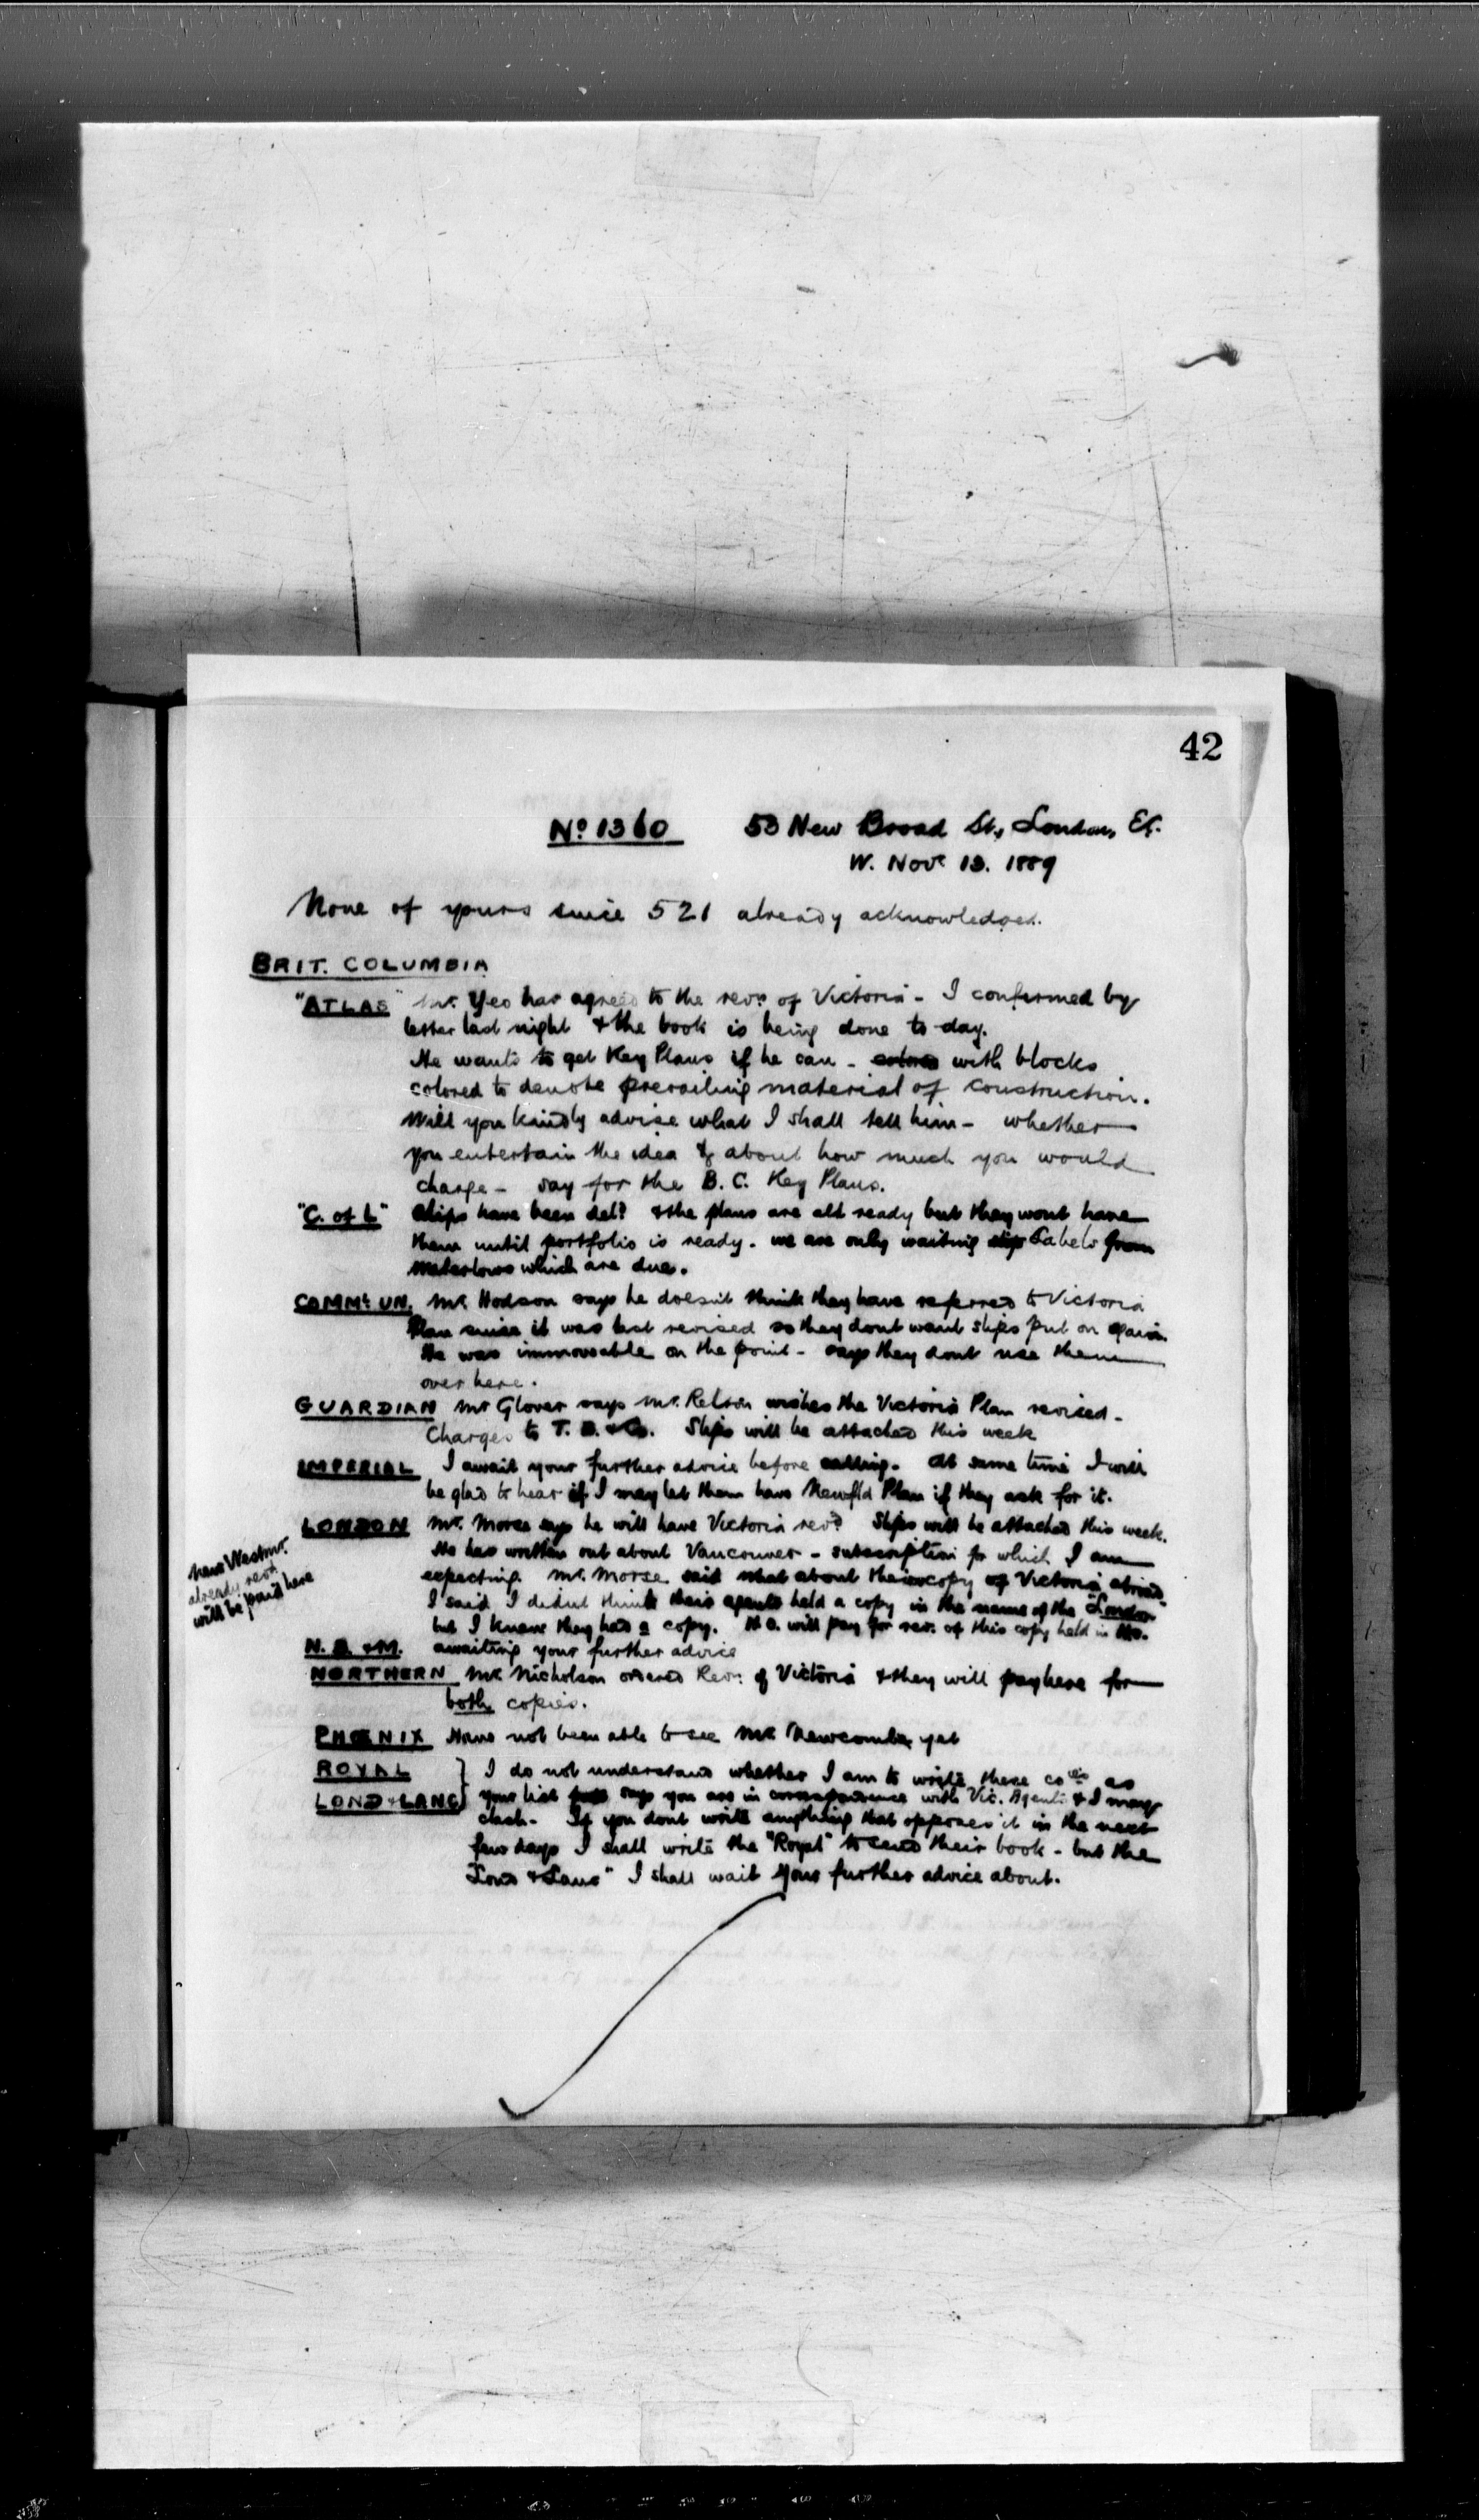 42
No 1360 53 New Broad St., London, EC.
W. Novr 13. 1889
None of yours since 521 already acknowledged.
BRIT. COLUMBIA
"ATLAS" Mr. Yeo has agreed to the revn of Victoria - I confirmed by
letter last night & the book is being done to-day.
He wants to get Key Plans if he can - colored with blocks
colored to denote prevailing material of construction.
Will you kindly advise what I shall tell him - whether
you entertain the idea & about how much you would
charge - say for the B. C. Key Plans.
"C. of L" Slips have been deld & the plans are all ready but they wont have
them until portfolio is ready. we are only waiting slip Labels from
Waterlows which are due.
COMML UN. Mr. Hodson says he doesnt think they have referred to Victoria
Plan since it was last revised so they dont want slips put on again.
He was immoveable on the point - says they dont use them
over here.
GUARDIAN Mr Glover says Mr. Relton wishes the Victoria Plan revised -
Charged to T. B. & Co. Slips will be attached this week
IMPERIAL I await your further advice before calling. At same time I will
be glad to hear if I may let them have Newfld Plan if they ask for it.
LONDON Mr. Morse says he will have Victoria revd Slips will be attached this week.
He has written out about Vancouver - subscription for which I am
expecting. Mr. Morse said what about their copy of Victoria abroad
I said I didnt think their agents held a copy in the name of the "London"
but I knew they had a copy. H.O. will pay for rev. of this copy held in
have Westmr.
already revd
will be paid here
N. B. & M. awaiting your further advice
NORTHERN Mr. Nicholson ordered Revn of Victoria & they will pay here for
both copies.
PHŒNIX Have not been able to see Mr Newcombe yet
ROYAL } I do not understand whether I am to write these coies as
LOND & LANC } your list says you are in correspondence with Vic. Agents & I may
clash - If you dont write anything that opposes it in the next
few days I shall write the "Royal" to send their book - but the
"Lond & Lanc" I shall wait your further advice about.